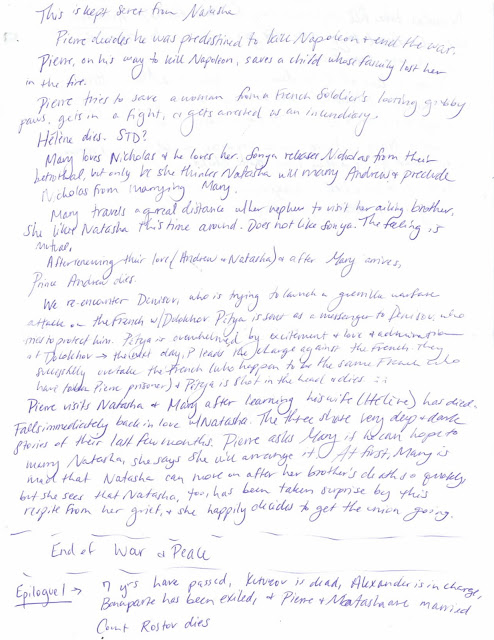 This is kept secret from Natasha
Pierre decides he was predestined to kill Napoleon & end the war.
Pierre, on his way to kill Napoleon, saves a child whose family lost her
in the fire.
Pierre tries to save a woman from a French soldier's looting grabby
paws, gets in a fight, & gets arrested as an incendiary.
Hélène dies. STD?
Mary loves Nicholas & he loves her. Sonya releases Nicholas from their
betrothal, but only bc she thinks Natasha will marry Andrew & preclude
Nicholas from marrying Mary.
Mary travels a great distance w/ her nephew to visit her ailing brother.
She likes Natasha this time around. Does not like Sonya. The feeling is
mutual.
After renewing their love (Andrew & Natasha) & after Mary arrives,
Prince Andrew dies.
We re-encounter Denisov, who is trying to launch a guerilla warfare
attack on the French w/ Dolokhov Pitya is sent as a messenger to Denisov, who
tries to protect him. Pitya is overwhelmed by excitement & love & admiration
of Dolokhov → the next day, P leads the charge against the French. They
successfully overtake the French (who happen to be the same French who
have taken Pierre prisoner) & Pitya is shot in the head & dies
Pierre visits Natasha & Mary after learning his wife (Hélène) has died.
Falls immediately back in love w/ Natasha. The three share very deep & dark
stories of their last few months. Pierre asks Mary if he can hope to
marry Natasha, she says she will arrange it. At first, Mary is
that Natasha can move on after her brother's death so quickly
but she sees that Natasha, too, has been taken surprise by this
respite from her grief, & she happily decides to get the union going.
End of War & Peace
Epilogue 1 → 7 yrs have passed, Kutuzov is dead, Alexander is in charge,
Bonaparte has been exiled, & Pierre & Natasha are married
Count Rostov dies